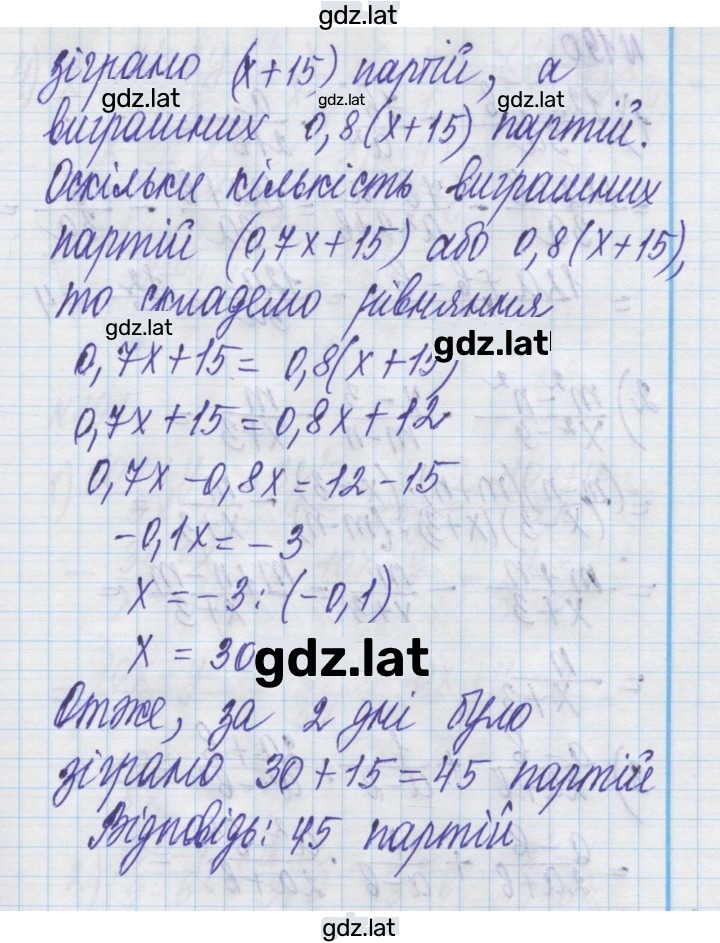 gdz.lat
зіграно (x+15) партій, а
gdz.lat gdz.lat gdz.lat
виграшних 0,8(x+15) партій.
Оскільки кількість виграшних
партій (0,7x+15) або 0,8(x+15),
то складемо рівняння
gdz.lat gdz.lat
0,7x+15 = 0,8(x+15)
0,7x+15 = 0,8x+12
0,7x - 0,8x = 12 - 15
-0,1x = -3
x = -3 : (-0,1)
x = 30
gdz.lat
Отже, за 2 дні було
зіграно 30+15 = 45 партій
Відповідь: 45 партій
gdz.lat